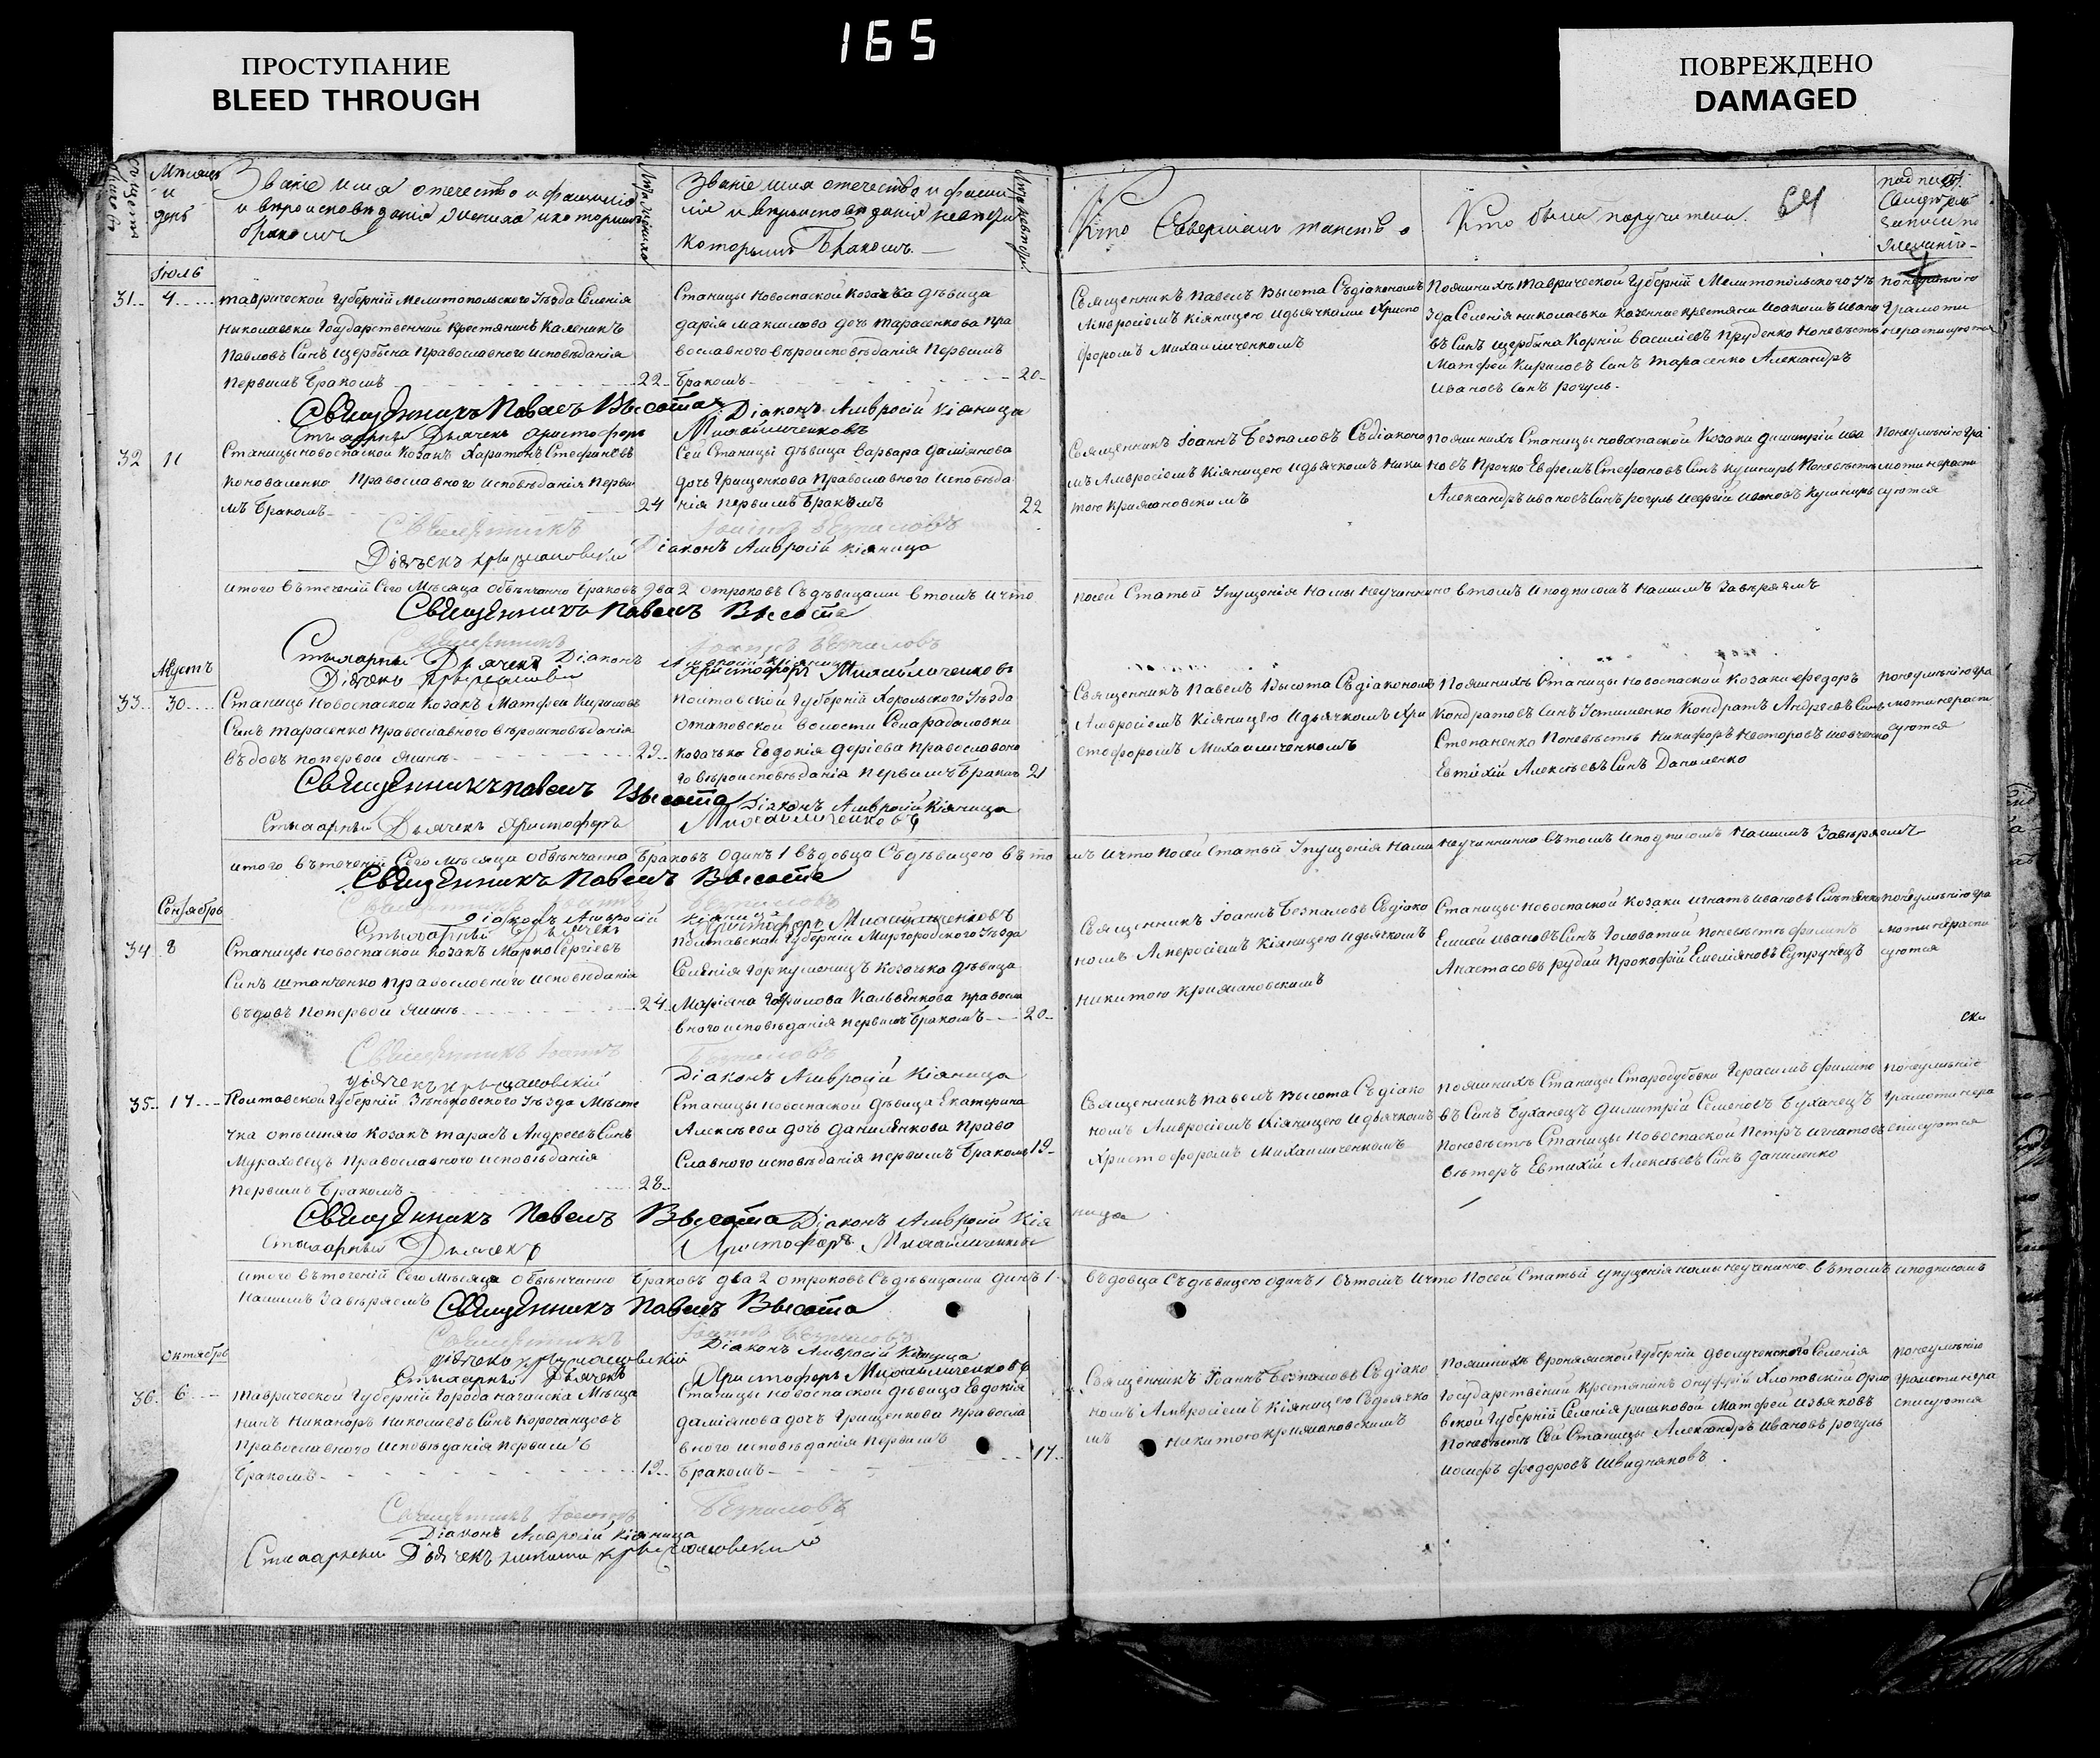 165
ПРОСТУПАНИЕ
BLEED THROUGH
ПОВРЕЖДЕНО
DAMAGED
Мѣсяцъ
и
день
Званіе имя отечество и фамилія
и вѣроисповѣданія жениха и которымъ
бракомъ
Званіе имя отечество и фами
лія и вѣроисповѣданія невѣсты
которымъ Бракомъ
Кто Совершалъ таинство
Кто были поручители
64
Іюль
31 4 таврической губерніи Мелитопольского Уѣзда Селенія
Николаевки Государственній крестянинъ Каленикъ
Павловъ Синъ щербина Православного исповѣданія
Первимъ бракомъ 22
Станицы Новоспаской козачка дѣвица
дарія максимова дочь тарасенкова пра
вославного вѣроисповѣданія Первимъ
бракомъ 20
Священникъ Павелъ Высота Съдіакономъ
Амвросіемъ Кіяницею идьячкомъ Христо
форомъ Михайличенкомъ
Поженихѣ таврической Губерніи Мелитопольского Уѣ
зда Селенія николаевки казенніе крестяни Иоакимъ ивано
въ Синъ щербина Корній василіевъ Пруденко Поневѣстѣ
Матфей Кириловъ Синъ тарасенко Александръ
Ивановъ Синъ рогуль
грамоти
нерасписуются
Священникъ Павелъ Высота Діаконъ Амвросій Кіяница
Стихарный Дьячекъ Христофоръ Михайличенковъ
32 11 Станицы новоспаской Козакъ Харитонъ Стефановъ
Коноваленко Православного исповѣданія Перви
мъ бракомъ 24
Сей Станицы дѣвица Варвара даміянова
дочь Грищенкова Православного исповѣда
нія первимъ бракомъ 22
Священникъ Іоаннъ Безпаловъ Съдіаконо
мъ Амвросіемъ Кіяницею идьячкомъ ники
тою Крижановскимъ
Поженихѣ Станицы новоспаской Козаки димитрій ива
новъ Прочко Евфемъ Стефановъ Синъ кушниръ Поневѣстѣ
Александръ ивановъ Синъ рогуль игеоргій ивановъ Кушниръ
Понеумѣнію гра
моти нераспи
суются
Священникъ Іоаннъ Безпаловъ
Дьячекъ Крижановскій Діаконъ Амвросій Кіяница
итого вътеченіи Сего мѣсяца обвѣнчанно браковъ два 2 отроковъ Съдѣвицами втомъ ичто
посей Статьи Упущенія нами неучинино втомъ иподписомъ нашимъ Завѣряемъ
Священникъ Павелъ Высота
Священникъ Іоаннъ Безпаловъ
Стихарный Дьячекъ Діаконъ Амвросій Кіяница
Христофоръ Михайличенковъ
Августъ
33 30 Станицы Новоспаской Козакъ Матфей Кириловъ
Синъ тарасенко православного вѣроисповѣданія
въдовъ попервой женѣ 23
Полтавской Губерніи Хорольского Уѣзда
козачка Евдокія православно
го вѣроисповѣданія первимъ бракомъ 21
Священникъ Павелъ Высота Съдіакономъ
Амвросіемъ Кіяницею идьячкомъ Хри
стофоромъ Михайличенкомъ
Поженихѣ Станицы новоспаской Козаки федоръ
Кондратовъ Синъ Устименко Кондратъ Андреевъ Синъ
Степаненко Поневѣстѣ никифоръ несторовъ шевченко
Евтихій Алексѣевъ Синъ Даниленко
понеумѣнію гра
моти нераспи
суются
Священникъ Павелъ Высота Діаконъ Амвросій Кіяница
Стихарный Дьячекъ Христофоръ Михайличенковъ
итого вътеченіи Сего мѣсяца обвѣнчанно браковъ одинъ 1 въдовца Съдѣвицею въто
мъ ичто посей Статьи Упущенія нами неучининно вътомъ иподписомъ нашимъ Завѣряемъ
Священникъ Павелъ Высота
Сентябрь
Діаконъ Амвросій Кіяница
Стихарный Дьячекъ Христофоръ Михайличенковъ
34 8 Станицы новоспаской Козакъ Марко Сергіевъ
Синъ штанченко православного исповѣданія
въдовъ попервой женѣ 24
Полтавская Губерніи Миргородского Уѣзда
козачка дѣвица
православ
вного исповѣданія первимъ бракомъ 20
Священникъ Іоаннъ Безпаловъ Съдіако
номъ Амвросіемъ Кіяницею идьячкомъ
никитою крижановскимъ
Станицы новоспаской Козаки игнатъ ивановъ
Елисей ивановъ Синъ Головатий поневѣстѣ филипъ
Анастасовъ рудий Прокофій Емеліяновъ Супрунецъ
понеумѣнію гра
моти нераспи
суются
Священникъ Іоаннъ Безпаловъ
Дьячекъ Крижановскій Діаконъ Амвросій Кіяница
35 17 Полтавской Губерніи Зѣньковского Уѣзда Мѣсте
чка опошняго козакъ тарасъ Андреевъ Синъ
Мураховецъ православного исповѣданія
первимъ бракомъ 28
Станицы новоспаской дѣвица Екатерина
Алексѣева дочь даниленкова право
славного исповѣданія первимъ бракомъ 19
Священникъ павелъ высота Съдіако
номъ Амвросіемъ Кіяницею идьячкомъ
Христофоромъ Михайличенкомъ
поженихѣ Станицы Стародубовки Герасимъ филипо
въ Синъ Буханецъ димитрій Семеновъ Буханецъ
поневѣстѣ Станицы новоспаской Петръ игнатовъ
вѣтеръ Евтихій Алексѣевъ Синъ даниленко
понеумѣнію
грамоти нера
списуются
Священникъ Павелъ Высота Діаконъ Амвросій Кія
ница
Стихарный Дьячекъ Христофоръ Михайличенковъ
итого вътеченіи Сего мѣсяца обвѣнчанно браковъ два 2 отроковъ Съдѣвицами динъ 1
въдовца Съдѣвицею одинъ 1 вътомъ ичто посей Статьи упущенія нами неучининно вътомъ иподписомъ
нашимъ Завѣряемъ Священникъ Павелъ Высота
Священникъ Іоаннъ Безпаловъ
Діаконъ Амвросій Кіяница
Стихарный Дьячекъ Христофоръ Михайличенковъ
Октябрь
36 6 таврической Губерніи Города нагайска Мѣща
нинъ никаноръ николаевъ Синъ Короганцовъ
православного исповѣданія первимъ
бракомъ 19
Станицы новоспаской дѣвица Евдокія
даміянова дочь Грищенкова правосла
вного исповѣданія первимъ
бракомъ 17
Священникъ Іоаннъ Безпаловъ Съдіако
номъ Амвросіемъ Кіяницею Съдьячко
мъ никитою крижановскимъ
Поженихѣ воронежской Губерніи двелученского Селенія
Государствений крестянинъ онуфрій Хлоповскій орло
вской Губерніи Селенія рижковой Матфей извяковъ
поневѣстѣ Сей Станицы Александръ ивановъ рогуль
иосифъ федоровъ швидняковъ
понеумѣнію
грамоти нера
списуются
Священникъ Іоаннъ Безпаловъ
Діаконъ Амвросій Кіяница
Стихарный Дьячекъ никита Крижановскій